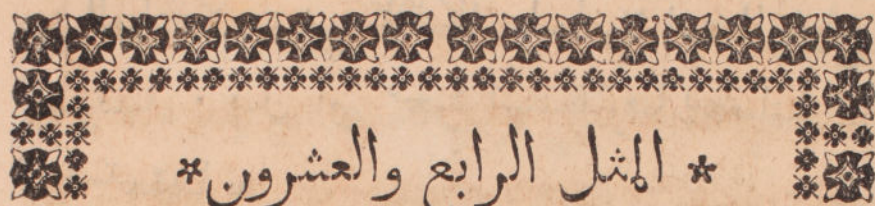 * المثل الرابع والعشرون *